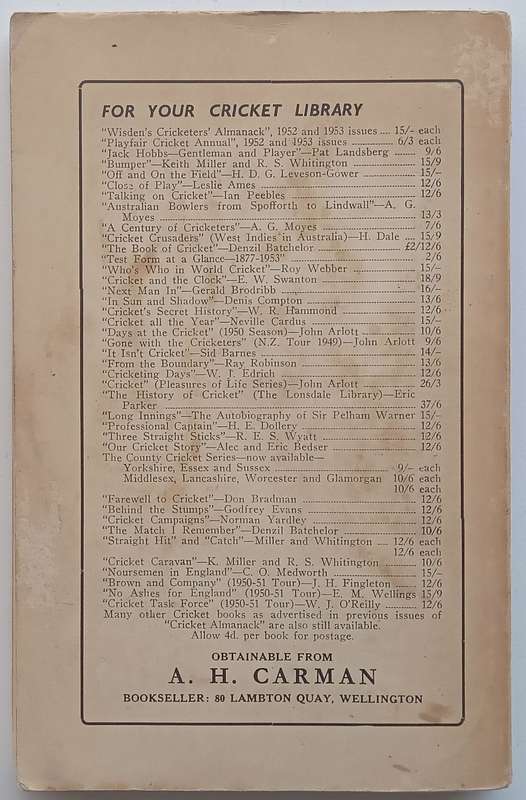 FOR YOUR CRICKET LIBRARY
"Wisden's Cricketers' Almanack", 1952 and 1953 issues .... 15/- each
"Playfair Cricket Annual", 1952 and 1953 issues ............ 6/3 each
"Jack Hobbs—Gentleman and Player"—Pat Landsberg ........ 9/6
"Bumper"—Keith Miller and R. S. Whitington ................ 15/9
"Off and On the Field"—H. D. G. Leveson-Gower ................ 15/-
"Close of Play"—Leslie Ames ................ 12/6
"Talking on Cricket"—Ian Peebles ................ 12/6
"Australian Bowlers from Spofforth to Lindwall"—A. G.
Moyes ................ 13/3
"A Century of Cricketers"—A. G. Moyes ................ 7/6
"Cricket Crusaders" (West Indies in Australia)—H. Dale .... 15/9
"The Book of Cricket"—Denzil Batchelor ................ £2/12/6
"Test Form at a Glance—1877-1953" ................ 2/6
"Who's Who in World Cricket"—Roy Webber ................ 15/-
"Cricket and the Clock"—E. W. Swanton ................ 18/9
"Next Man In"—Gerald Brodribb ................ 16/-
"In Sun and Shadow"—Denis Compton ................ 13/6
"Cricket's Secret History"—W. R. Hammond ................ 12/6
"Cricket all the Year"—Neville Cardus ................ 15/-
"Days at the Cricket" (1950 Season)—John Arlott ............ 10/6
"Gone with the Cricketers" (N.Z. Tour 1949)—John Arlott 9/6
"It Isn't Cricket"—Sid Barnes ................ 14/-
"From the Boundary"—Ray Robinson ................ 13/6
"Cricketing Days"—W. J. Edrich ................ 12/6
"Cricket" (Pleasures of Life Series)—John Arlott ................ 26/3
"The History of Cricket" (The Lonsdale Library)—Eric
Parker ................ 37/6
"Long Innings"—The Autobiography of Sir Pelham Warner 15/-
"Professional Captain"—H. E. Dollery ................ 12/6
"Three Straight Sticks"—R. E. S. Wyatt ................ 12/6
"Our Cricket Story"—Alec and Eric Bedser ................ 12/6
The County Cricket Series—now available—
Yorkshire, Essex and Sussex ................ 9/- each
Middlesex, Lancashire, Worcester and Glamorgan 10/6 each
10/6 each
"Farewell to Cricket"—Don Bradman ................ 12/6
"Behind the Stumps"—Godfrey Evans ................ 12/6
"Cricket Campaigns"—Norman Yardley ................ 12/6
"The Match I Remember"—Denzil Batchelor ................ 10/6
"Straight Hit" and "Catch"—Miller and Whitington .... 12/6 each
12/6 each
"Cricket Caravan"—K. Miller and R. S. Whitington .......... 10/6
"Noursemen in England"—C. O. Medworth ................ 15/-
"Brown and Company" (1950-51 Tour)—J. H. Fingleton ........ 12/6
"No Ashes for England" (1950-51 Tour)—E. M. Wellings 15/9
"Cricket Task Force" (1950-51 Tour)—W. J. O'Reilly ............ 12/6
Many other Cricket books as advertised in previous issues of
"Cricket Almanack" are also still available.
Allow 4d. per book for postage.
OBTAINABLE FROM
A. H. CARMAN
BOOKSELLER: 80 LAMBTON QUAY, WELLINGTON